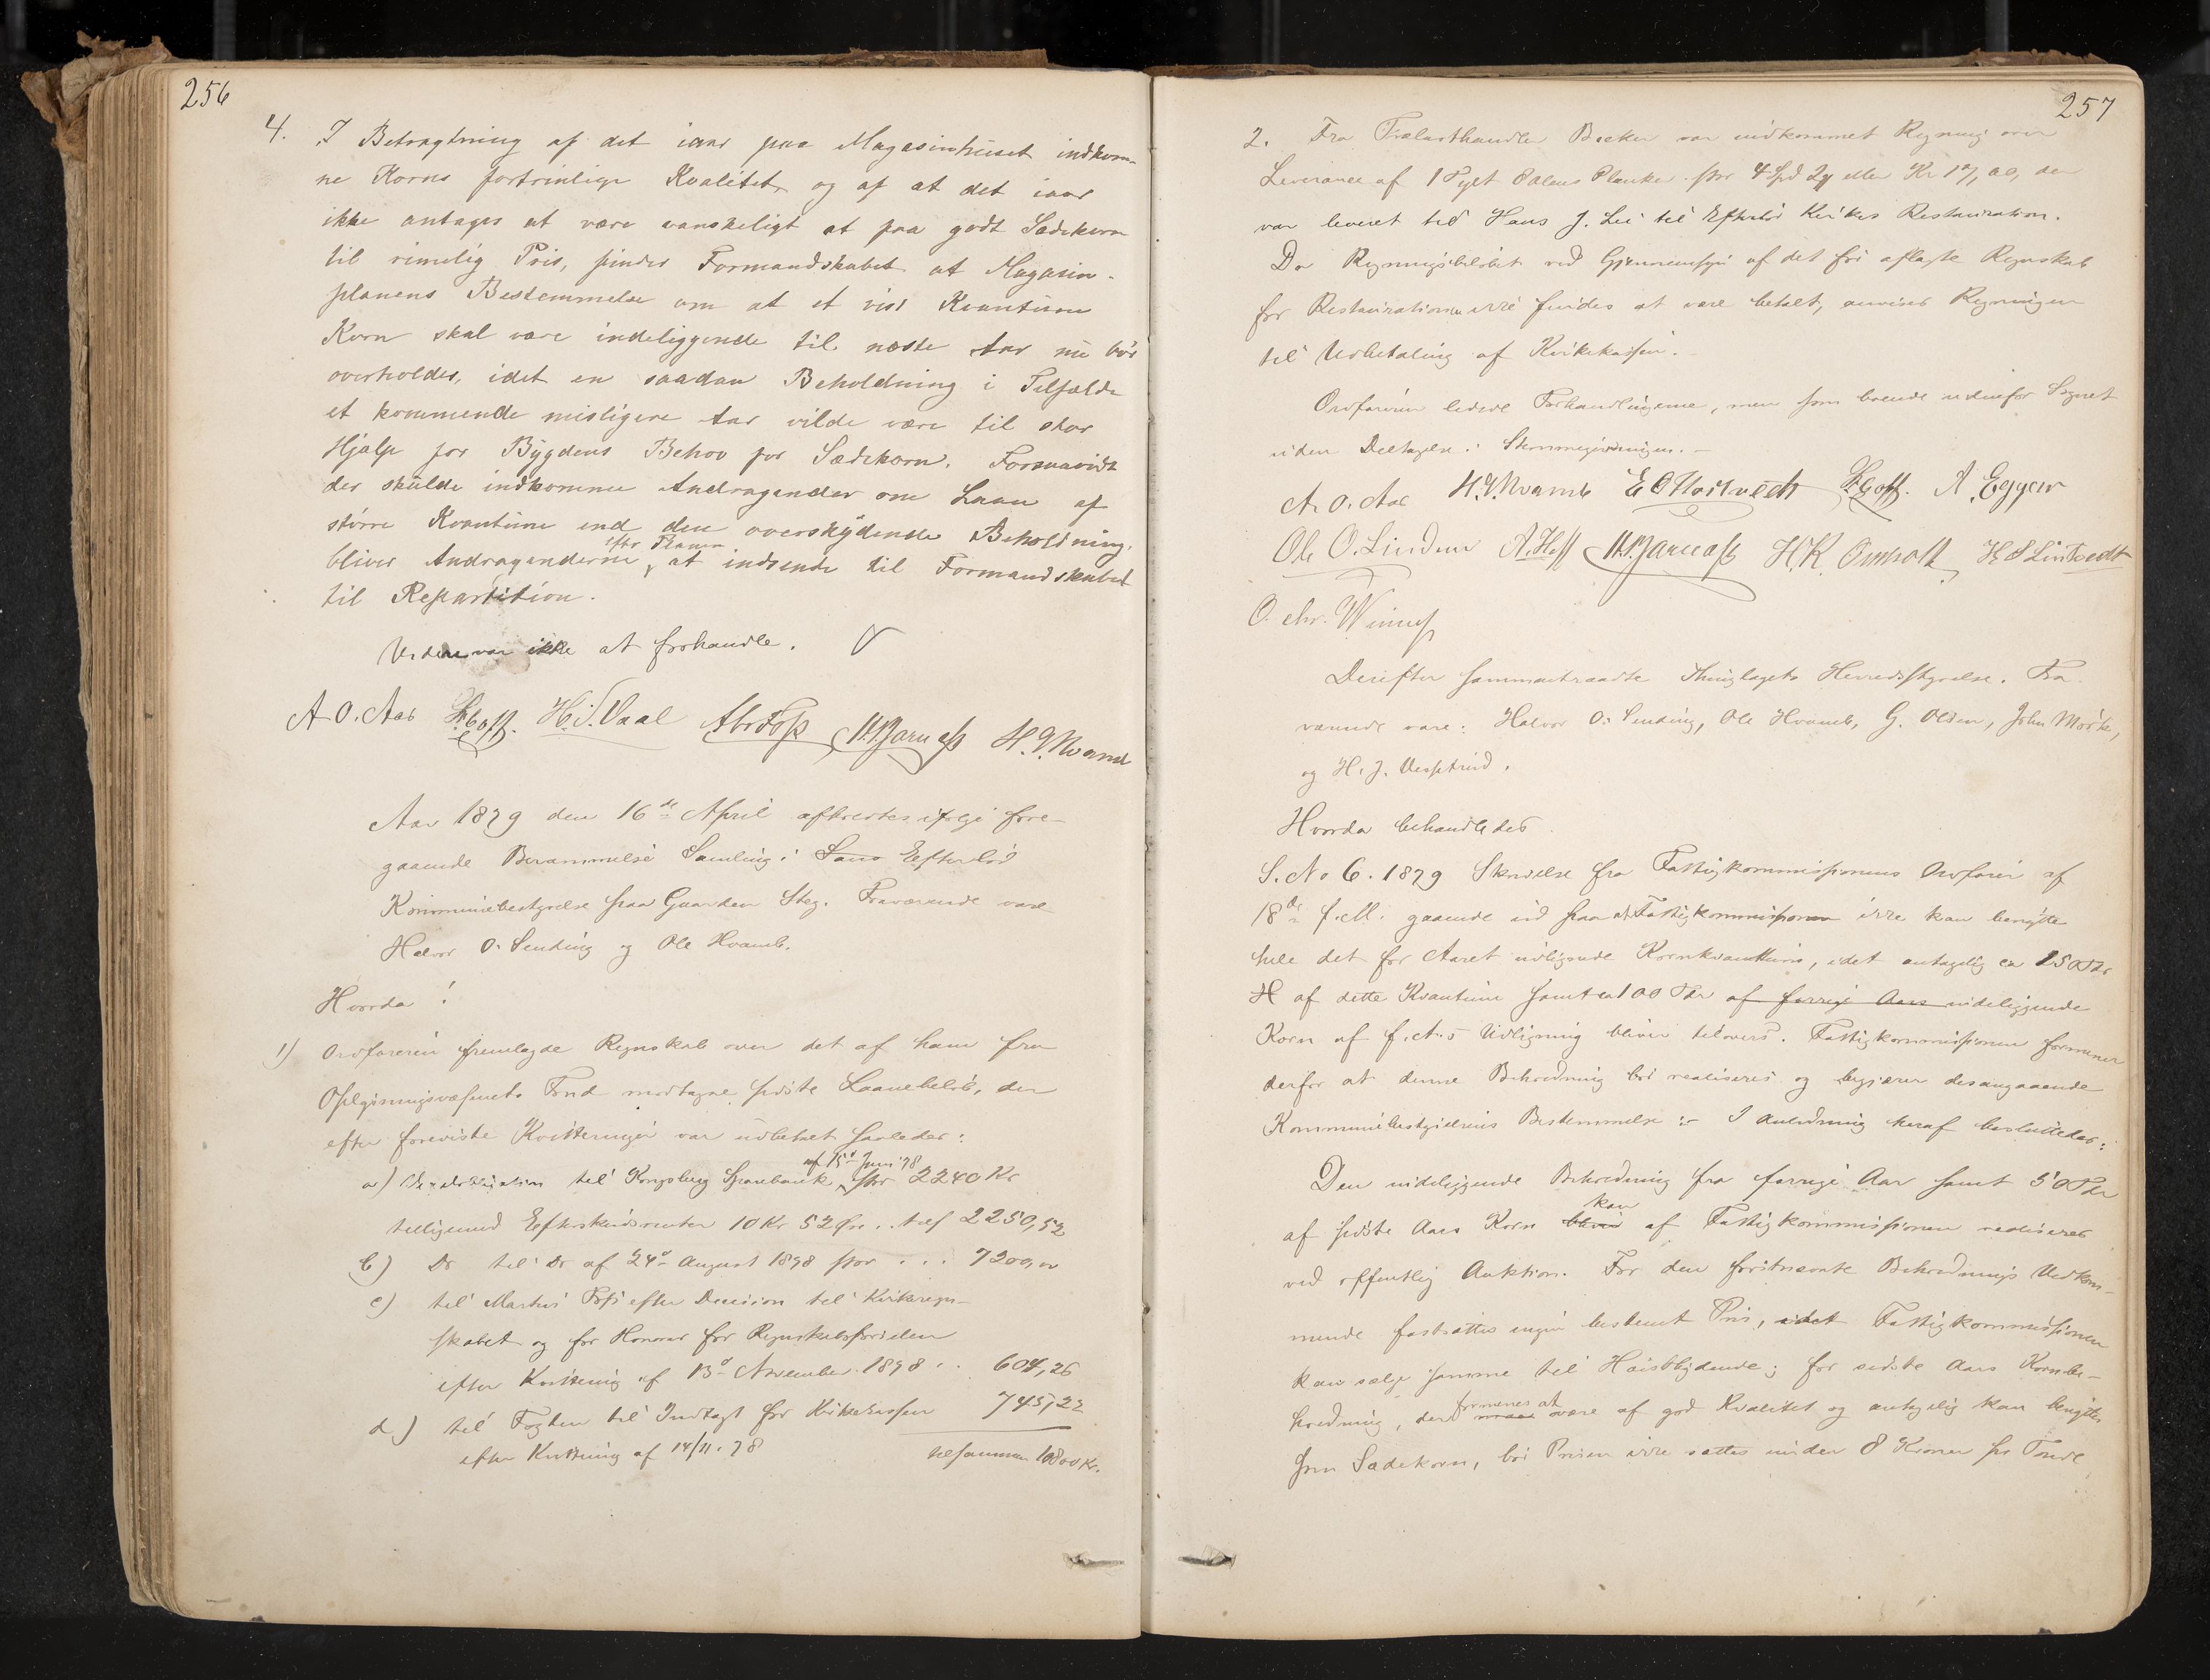 256
4. I Betragtning af det iaar paa Magasinhuset indkom-
ne Korns fortrinlige Kvalitet, og af at det iaar
ikke antages at være vanskeligt at faa godt Sædekorn
til rimelig Pris, finder Formandskabet at Magasin-
planens Bestemmelse om at et vist Kvantum
Korn skal være indeliggende til næste Aar nu bör
overholdes, idet en saadan Beholdning i Tilfælde
et kommende misligere Aar vilde være til stor
Hjælp for Bygdens Behov for Sædekorn. Forsaavidt
der skulde indkomme Andragender om Laan af
större Kvantum end den overskydende Beholdning,
bliver Andragenderne efter Planen at indsende til Formandskabet
til Repartition.
Videre var ikke at forhandle.
A. O. Aas H. Hoff. H. T. Vaal Abr Foss H. Jarness H. J. Kvame
Aar 1879 den 16de April afholdtes ifölge fore-
gaaende Berammelse Samling i Sans Efterlöd
Kommunebestyrelse paa Gaarden Steg. Fraværende vare
Halvor O. Sending og Ole Hvamb.
Hvorda!
1) Ordföreren fremlagde Regnskab over det af ham fra
Oplysningsvæsenets Fond modtagne sidste Laanebelöb, der
efter foreviste Kvitteringer var udbetalt saaledes:
a) til Kongsberg Sparebank af 15d Juni 78 stor 2240 Kr
tilligemed Efterskudsrenter 10 Kr 52 Öre . . 2250,52
b) Do til Do af 24d August 1878 stor . . . 7200,00
c) til Martin Foss efter Decision til Kirkeregn-
skabet og for Honorar for Regnskabsförselen
efter Kvittering af 13d November 1878 . . 604,26
d) til Fogden til Indtægt for Kirkekassen 745,22
efter Kvittering af 14/11. 78 tilsammen 10800 Kr.
257
2. Fra Trælasthandler Becker var indkommet Regning over
Leverance af 1 Tylt Planker stor 4 Spd 24 eller Kr 17,00, der
var leveret ved Hans J. Lie til Efterlöd Kirkes Restauration.
Da Regningsbelöbet ved Gjennemsyn af det for aflagte Regnskab
for Restaurationen ikke findes at være betalt, anvises Regningen
til Udbetaling af Kirkekassen.
Ordföreren ledede Forhandlingerne, men som boende udenfor Sognet
uden Deltagelse i Stemmegivningen.
A. O. Aas H. J. Kvamb H. Hoff. A. Eggen
Ole O. Linden A. Hoff H. Jarness H K Omholt H O Lintvedt
O. Chr. Winness
Derefter sammentraadte Thinglagets Herredsstyrelse. Fra
værende vare: Halvor O. Sending, Ole Hvamb, G. Olsen, John Mörke,
og H. J. Vesetrud.
Hvorda behandledes
S. No 6. 1879 Skrivelse fra Fattigkommissionens Ordförer af
18de f. M. gaaende ud paa at Fattigkommissionen ikke kan benytte
hele det for Aaret udlignede Kornkvantum, idet antagelig ca 150 Tdr
H af dette Kvantum samt ca 100 Tdr af forrige Aars indeliggende
Korn af f. A.s Udligning bliver tilovers. Fattigkommissionen formener
derfor at denne Beholdning bör realiseres og begjærer desangaaende
Kommunebestyrelsens Bestemmelse :- I Anledning heraf besluttedes:
Den indeliggende Beholdning fra forrige Aar samt 50 Tdr
af sidste Aars Korn bliver kan af Fattigkommissionen realiseres
ved offentlig Auktion. For den förstnævnte Beholdnings Vedkom-
mende fastsættes ingen bestemt Pris, idet Fattigkommissionen
kan sælge samme til Höistbydende; for sidste Aars Kornbe-
holdning, der maa formenes at være af god Kvalitet og antagelig kan benyttes
som Sædekorn, bör Prisen ikke sættes under 8 Kroner pr Tönde